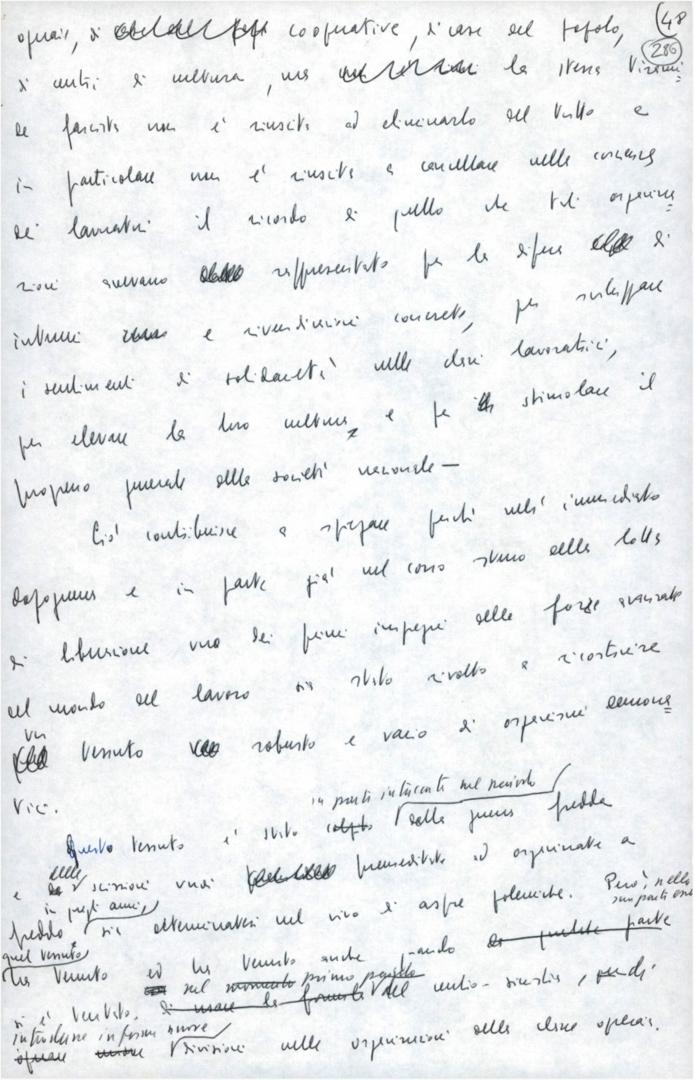 operai, di cooperative, di case del popolo, 48
di centri di cultura, ma la stessa tirani= 286
de fascista non è riuscita ad eliminarlo del tutto e
in particolare non è riuscita a cancellare nelle coscienze
dei lavoratori il ricordo di quello che tali organizza=
zioni avevano rappresentato per la difesa di
interessi e rivendicazioni concrete, per sviluppare
i sentimenti di solidarietà nelle classi lavoratrici,
per elevare la loro cultura e per stimolare il
progresso generale della società nazionale —
Ciò contribuisce a spiegare perché nell'immediato
dopoguerra e in parte già nel corso stesso della lotta
di liberazione uno dei primi impegni delle forze avanzate
del mondo del lavoro sia stato rivolto a ricostruire
un tessuto robusto e vario di organismi
vici.
in parte intaccato nel periodo
Questo tessuto è stato colpito dalla guerra fredda
e dalle scissioni premeditate ed organizzate a
in quegli anni,
freddo sia determinatesi nel vivo di aspre polemiche. Però, nella
sua parte
quel tessuto
ha tenuto ed ha tenuto anche quando da qualche parte
nel momento primo periodo
si è tentato, di usare la formula del centro-sinistra, di
introdurre in forme nuove
divisioni nelle organizzazioni della classe operaia.